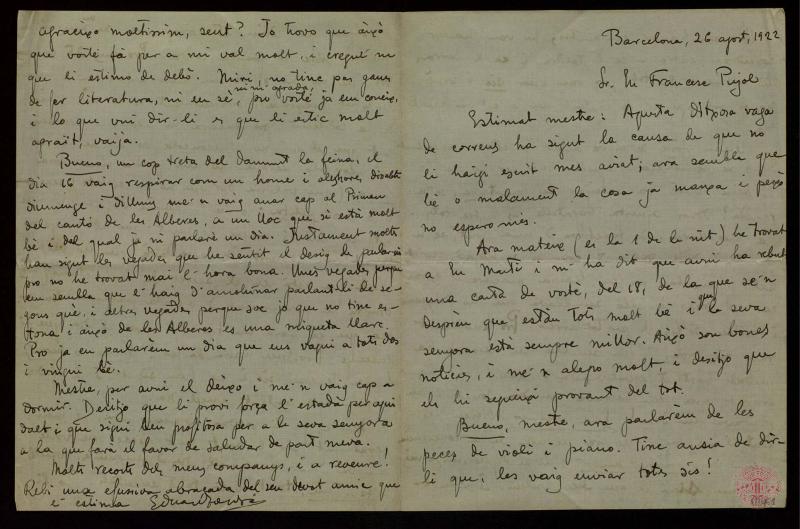 Barcelona, 26 agost, 1922
Sr. En Francesc Pujol
Estimat mestre: Aquesta ditxosa vaga
de correus ha sigut la causa de que no
li haigi escrit més aviat; ara sembla que
bé o malament la cosa ja marxa i penso
no espero més.
Ara mateix (es la 1 de la nit) he trovat
a En Martí i m'ha dit que avui ha rebut
una carta de vostè, del 18, de la que se'n
desprèn que estàn tots molt bé i que la seva
senyora està sempre millor. Aixó son bones
noticies, i me'n alegro molt, i desitjo que
els hi segueixi provant del tot.
Bueno, mestre, ara parlarèm de les
peces de violi i piano. Tinc ansia de dir-
li que, les vaig enviar totes sis!
agraeixo moltissim, sent? Jo trovo que aixó
que vostè fá per a mi val molt, i cregui'm
que li estimo de debó. Miri, no tinc pas ganes
de fer literatura, ni en sé, ni m'agrada, pro vostè ja em coneix,
i lo que vui dir-li es que li estic molt
agraït, vaija.
Bueno, un cop treta del damunt la feina, el
dia 16 vaig respirar com un home i aleshores dissabte
diumenge i dilluns me'n vaig anar cap al Pirineu
del cantó de les Alberes, a un lloc que s'i està molt
bé i del qual ja ni parlaré un dia. Justament molts
han sigut les vegades que he sentit el desig de parlar
pro no he trovat mai l'hora bona. Unes vegades perque
em sembla que l'haig d'amohinar parlant-li de se-
gons qué, i altres vegades perque soc jo que no tinc es-
tona i aixó de les Alberes es una miqueta llarc.
Pro ja en parlarèm un dia que ens vagui a tots dos
i vingui bé.
Mestre, per avui el deixo i me'n vaig cap a
dormir. Desitjo que li provi força l'estada per aqui
dalt i que sigui ben profitosa per a la seva senyora
a la que farà el favor de saludar de part meva.
Molts recorts dels meus companys, i a reveure!
Rebi una efusiva abraçada del seu devot amic que
l'estima Eduard